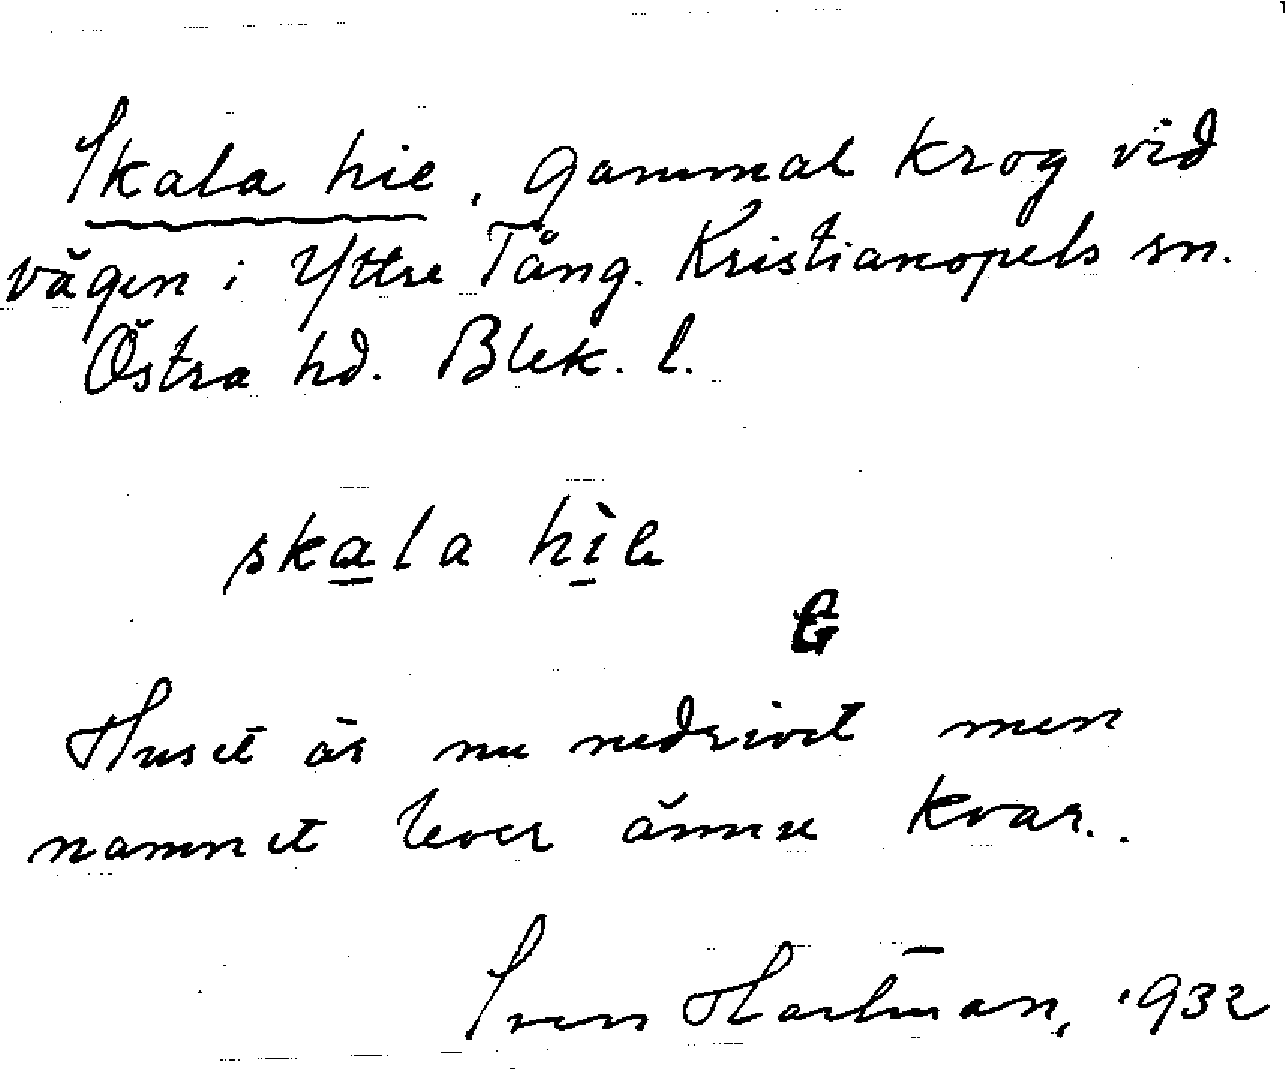 Skala hie, gammal krog vid
vägen i Yttre Tång. Kristianopels sn.
Östra hd. Blek. l.
skala hìe
G
Huset är nu nedrivet men
namnet lever ännu kvar.
Sven Hartman, 1932